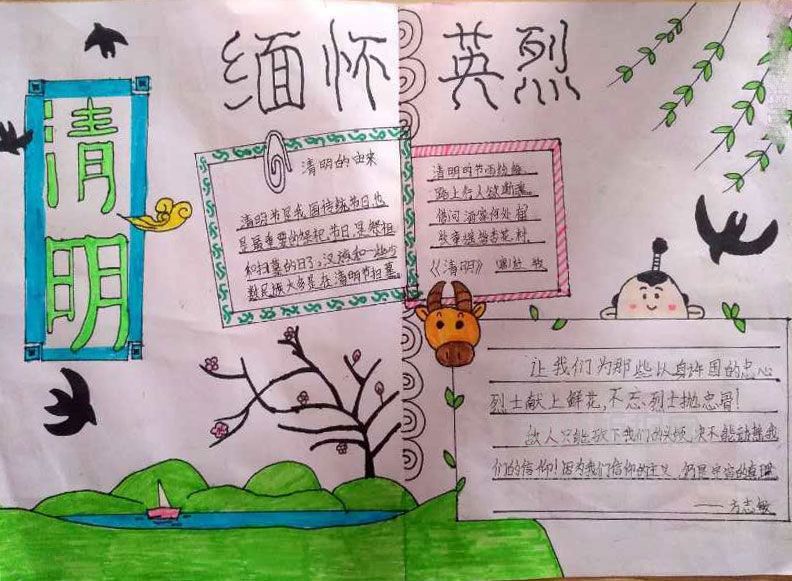 缅怀 英烈
清明
清明的由来
清明节是我国传统节日,也
是最重要的祭祀节日,是祭祖
和扫墓的日子,汉族和一些少
数民族大多是在清明节扫墓。
清明时节雨纷纷
路上行人欲断魂。
借问酒家何处有
牧童遥指杏花村.
《清明》 杜牧
让我们为那些以身许国的忠心
烈士献上鲜花,不忘烈士抛忠骨!
敌人只能砍下我们的头颅,决不能动摇我
们的信仰!因为我们信仰的主义,乃是宇宙的真理
——方志敏